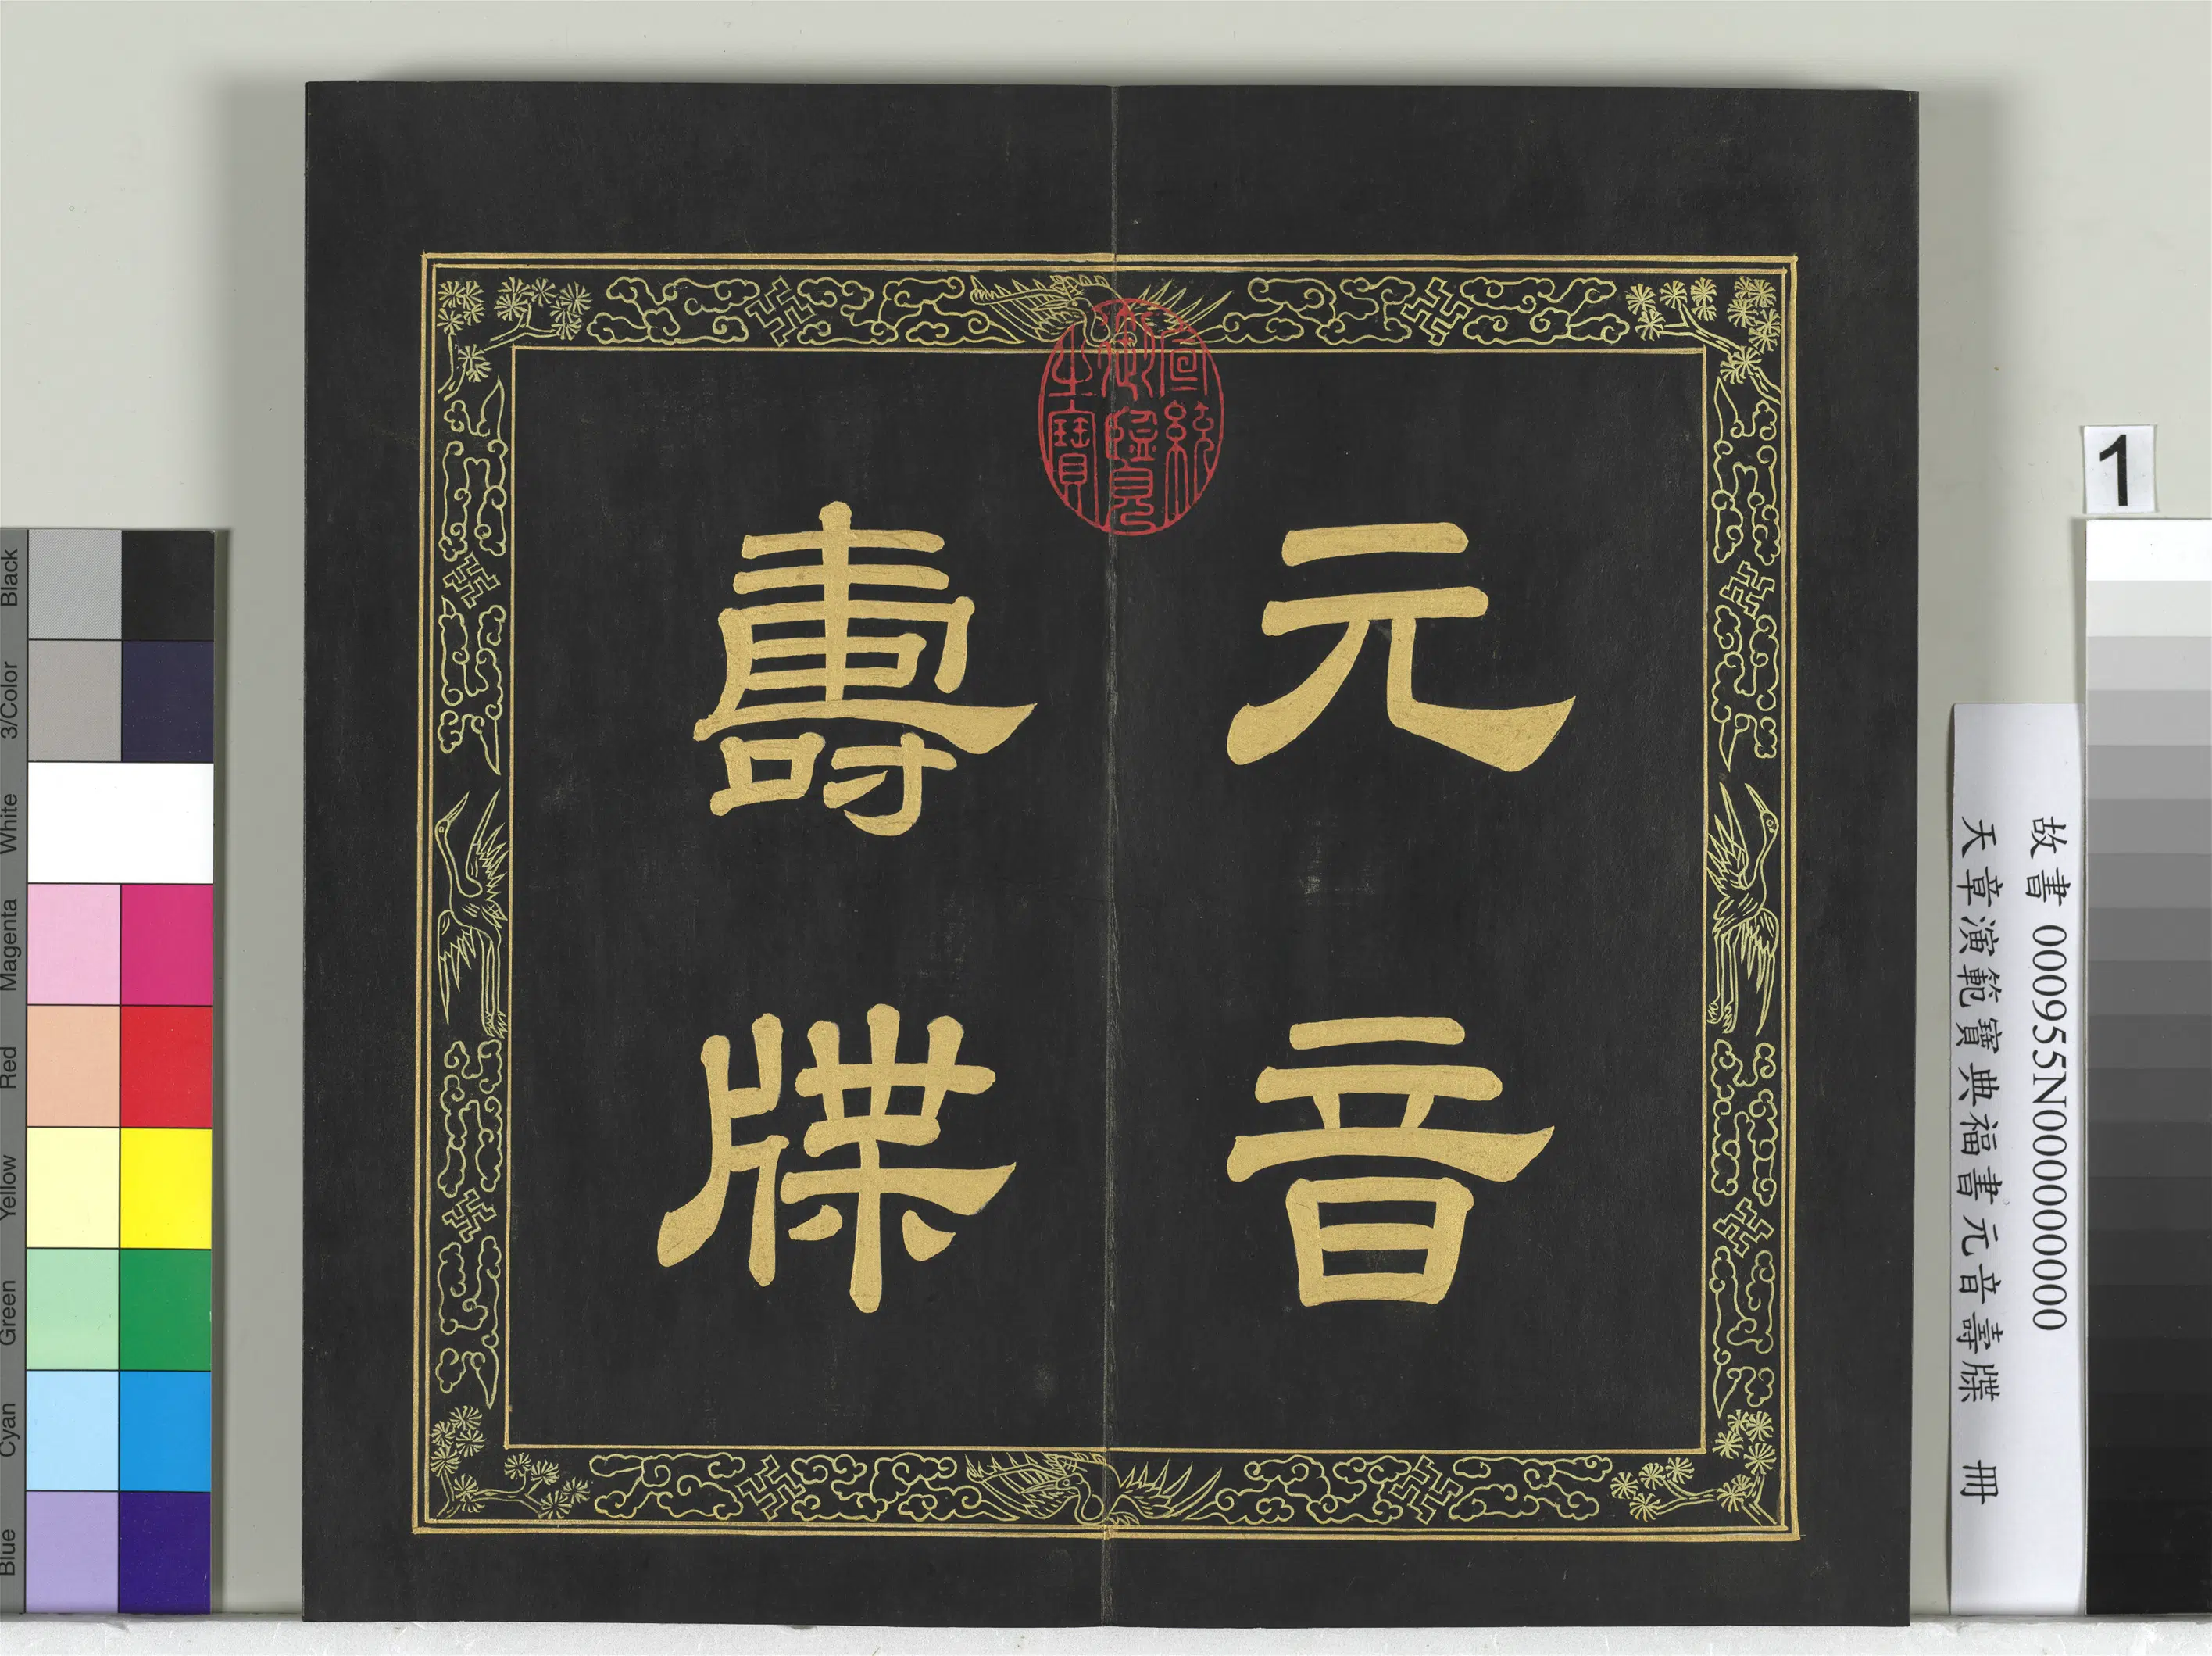 元音
壽牒
宣統御覽之寶
1
故書 000955N000000000
天章演範寶典福書元音壽牒 冊
Black
3/Color
White
Magenta
Red
Yellow
Green
Cyan
Blue